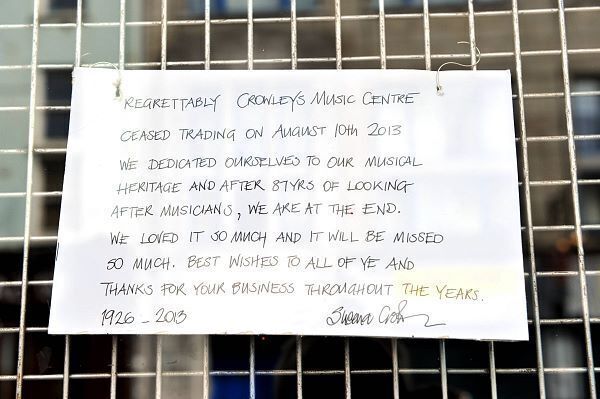 REGRETTABLY CROWLEYS MUSIC CENTRE
CEASED TRADING ON AUGUST 10TH 2013
WE DEDICATED OURSELVES TO OUR MUSICAL
HERITAGE AND AFTER 87YRS OF LOOKING
AFTER MUSICIANS, WE ARE AT THE END.
WE LOVED IT SO MUCH AND IT WILL BE MISSED
SO MUCH. BEST WISHES TO ALL OF YE AND
THANKS FOR YOUR BUSINESS THROUGHOUT THE YEARS.
1926 - 2013